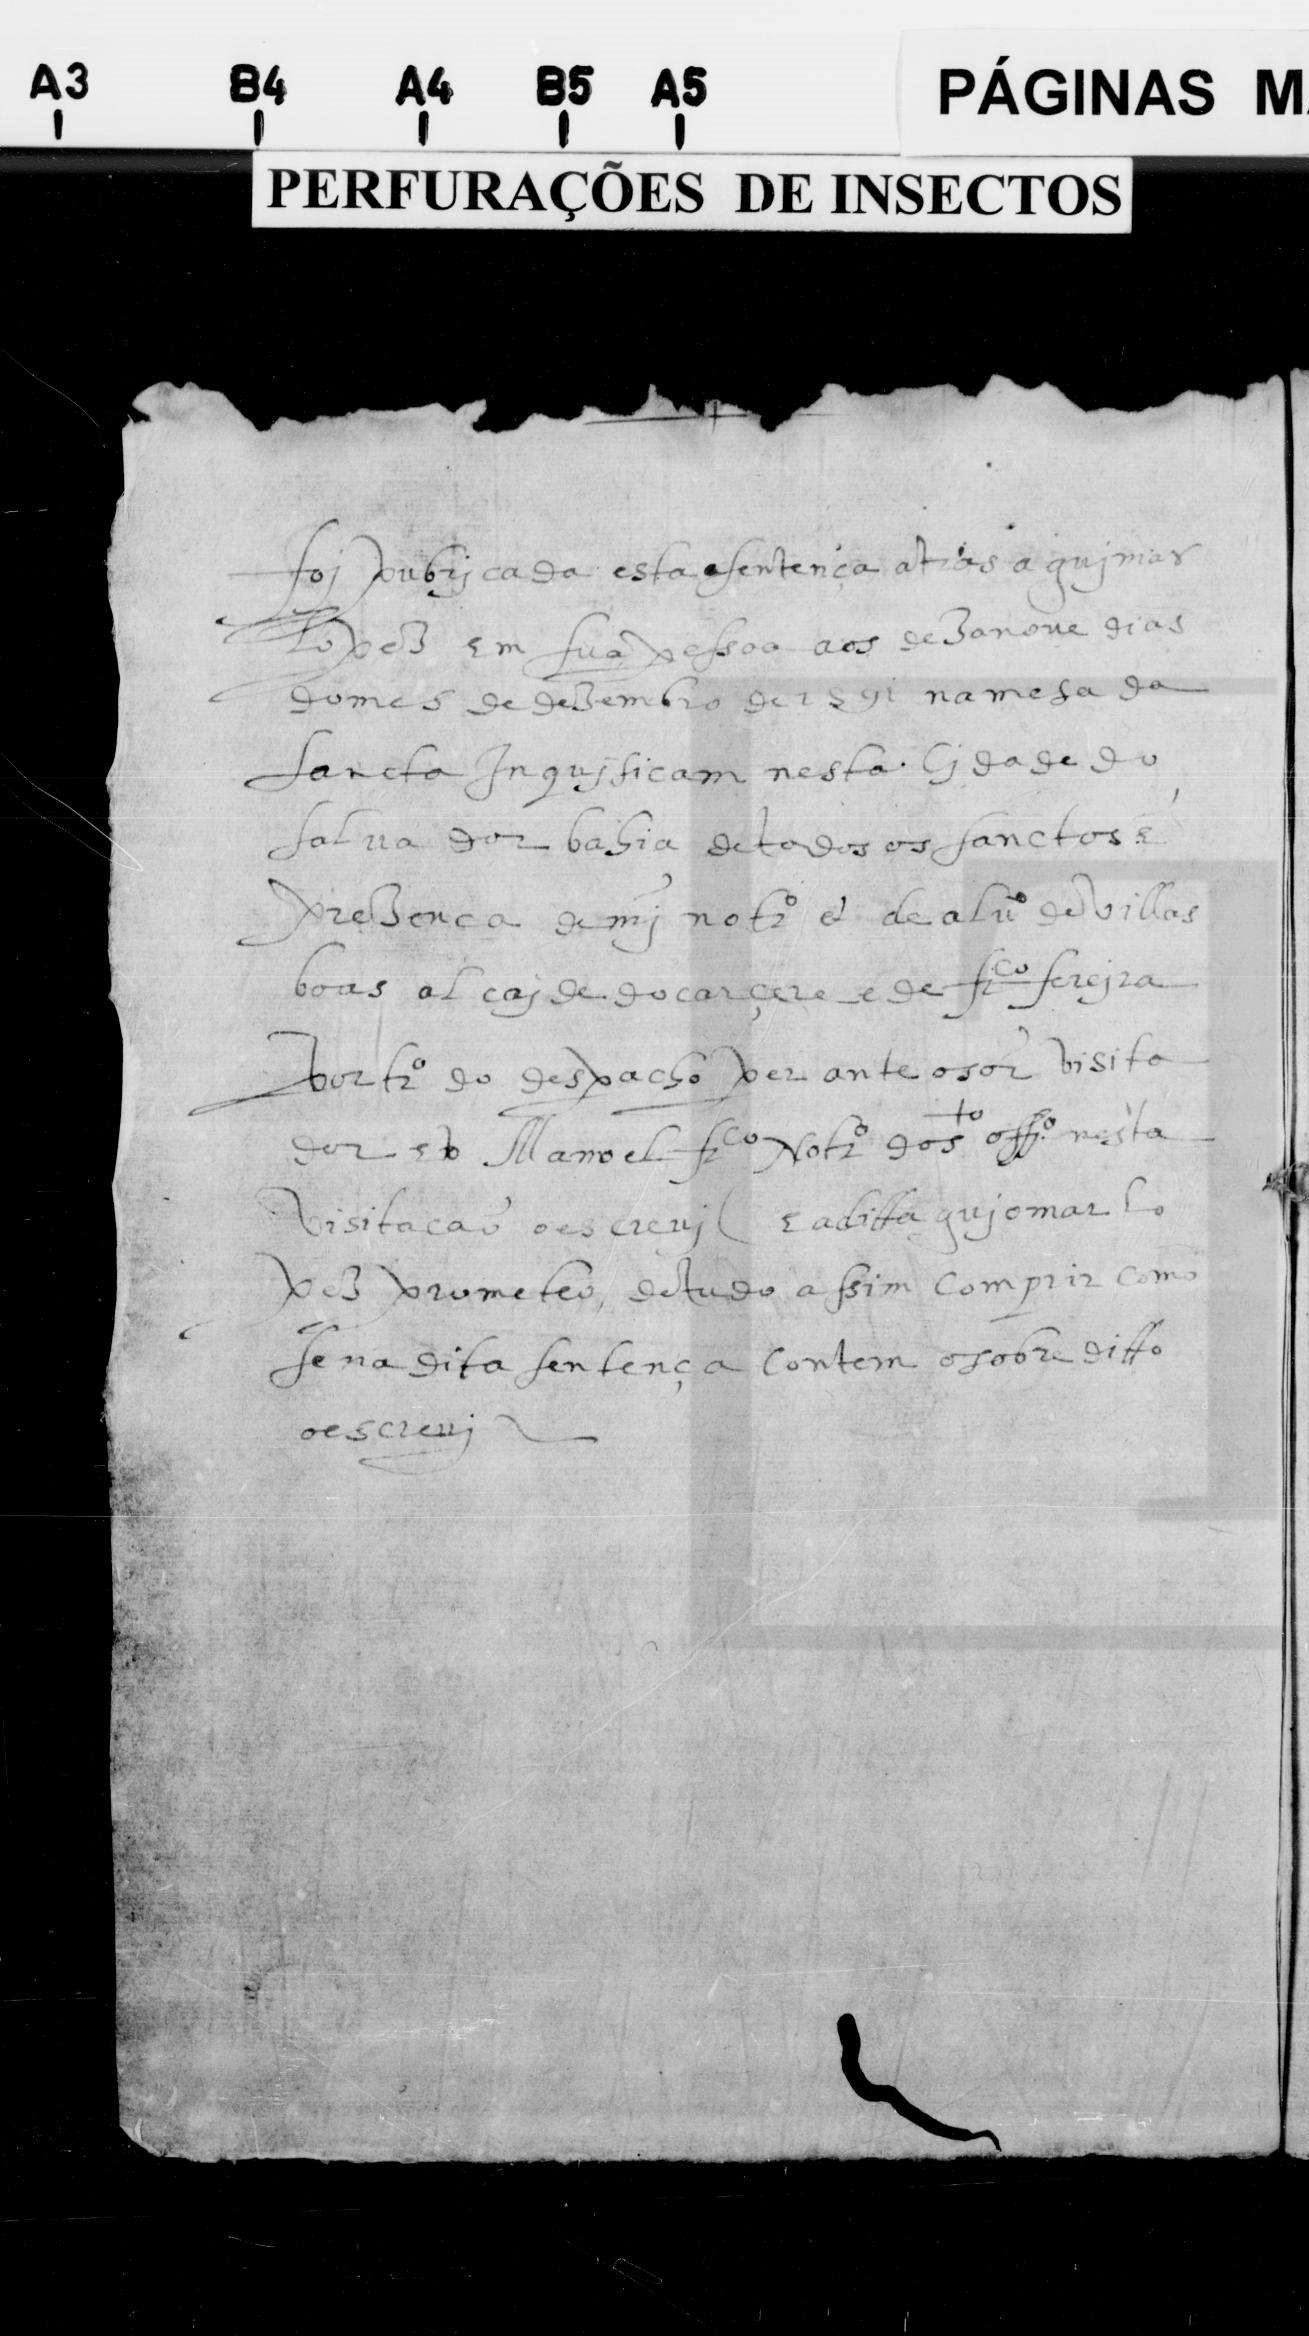 A3 B4 A4 B5 A5
PÁGINAS MA
PERFURAÇÕES DE INSECTOS
foj pubrjcada esta sentença atras a gujmar
lopez em sua pessoa aos dezanove dias
do mes de dezembro de 1591 na mesa da
sancta Inqujsicam nesta Cjdade do
salvador bahia de todos os sanctos e
prezença de mj̃ notrº e de alurº de villas
boas alcajde do carçere e de frco ferejra
portrº do despacho perante o sor visita
dor eu Manoel frco Notrº do sto offº nesta
visitacaõ o escrevj E a ditta gujomar lo
pez prometeo, de tudo assim Comprir Como
se na dita sentença Contem o sobreditto
o escrevj